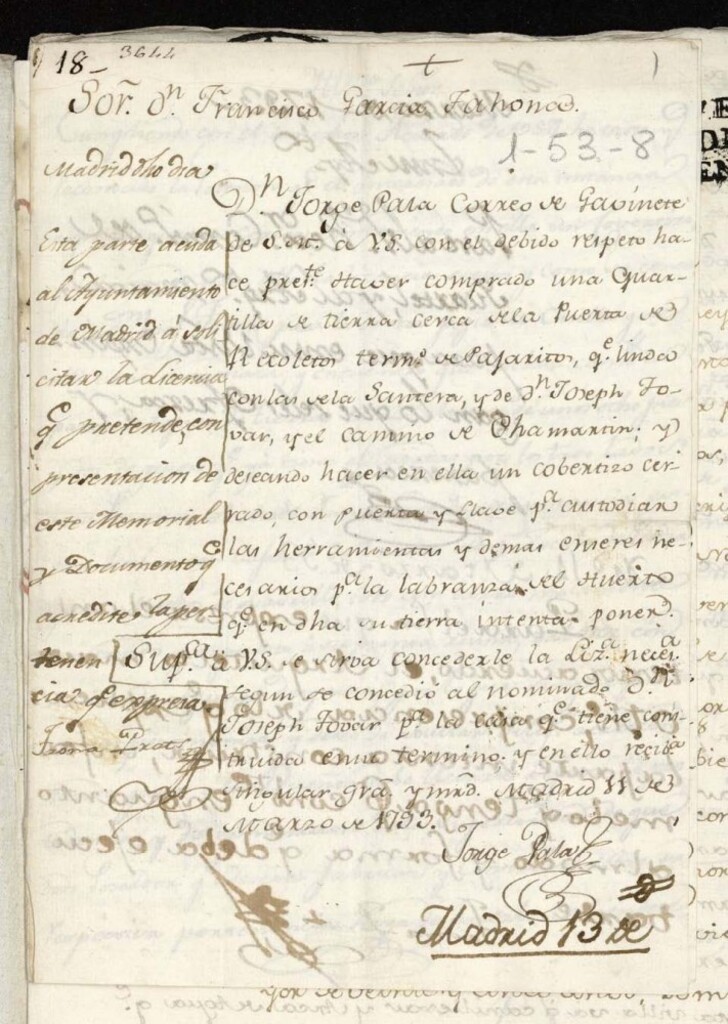 18-
3644
+
1
Sor. Dn. Francisco Garcia Tahona.
1-53-8
Madrid dho dia
Esta parte acuda
al Ayuntamiento
de Madrid á soli
citar la Licencia
q.e pretende, con
presentacion de
este Memorial
y Documento q.e
acredite la per
tenen
cia q.e expresa
Dn. Jorge Pala Correo de Gavinete
de S.M. á V.S. con el debido respeto ha-
ce pres.te Haver comprado una Quar-
tilla de tierra cerca de la Puerta de
Recoletos term.o de Pajaritos, q.e linda
con las de la Santera, y de Dn. Joseph To-
var, y el camino de Chamartin; y
deseando hacer en ella un cobertizo cer-
rado, con puerta y llave p.a custodiar
las herramientas y demas enseres ne-
cesarios p.a la labranza del Huerto
q.e en dha su tierra intenta poner.
Sup.ca á V.S. se sirva concederle la Liz.a neces.a
segun se concedió al nominado Dn.
Joseph Tovar p.a la casa q.e tiene cons-
truida en su termino; y en ello recivirá
singular gra. y mrd. Madrid 11 de
Marzo de 1793.
Jorge Pala
Madrid 13 de